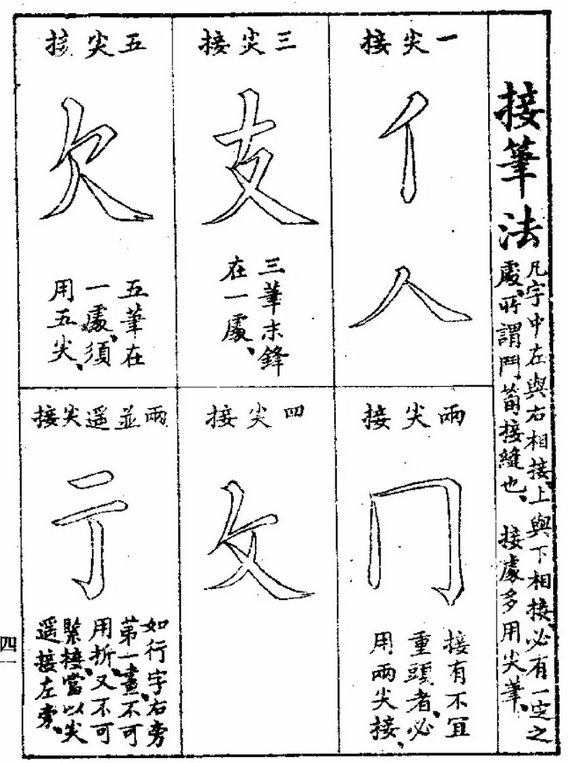 接筆法
凡字中左與右相接、上與下相接、必有一定之
處、所謂鬥筍接縫也、　接處多用尖筆、
一尖接
亻
人
兩尖接
冂
接有不宜
重頭者、必
用兩尖接、
三尖接
支
三筆末鋒
在一處、
四尖接
攵
五尖接
欠
五筆在
一處、須
用五尖、
兩並遥尖接
亍
如行字、右旁
第一畫、不可
用折、又不可
緊接、當以尖
遥接左旁、
四一